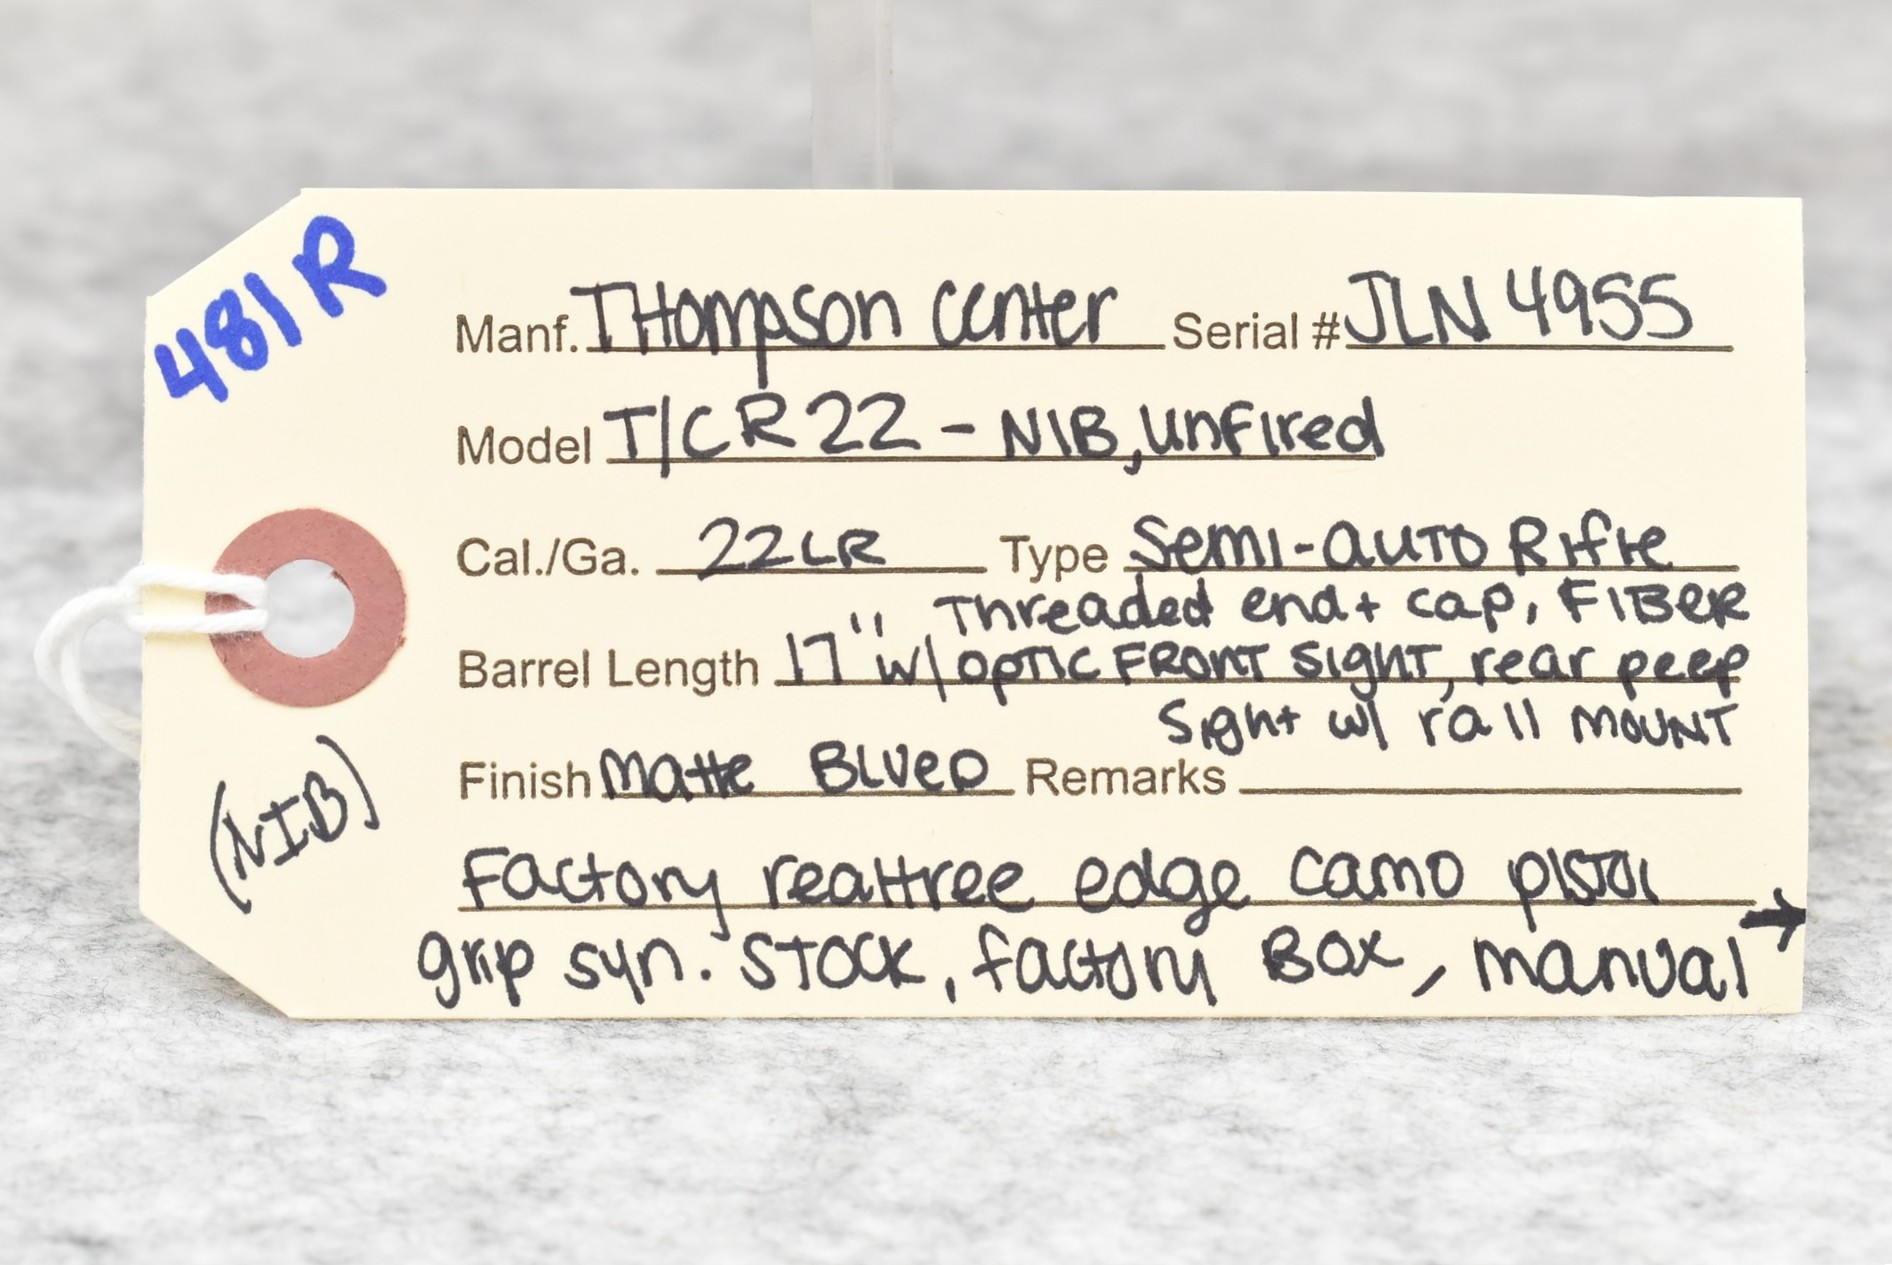 481R
Manf. Thompson Center Serial # JLN 4955
Model T/CR22 - NIB, unfired
Cal./Ga. 22LR Type Semi-auto Rifle
Threaded end + cap, FIBER
Barrel Length 17" w/ optic FRONT sight, rear peep
sight w/ rail MOUNT
Finish Matte Blued Remarks
(NIB)
Factory realtree edge camo pistol
grip syn. stock, factory Box, manual →